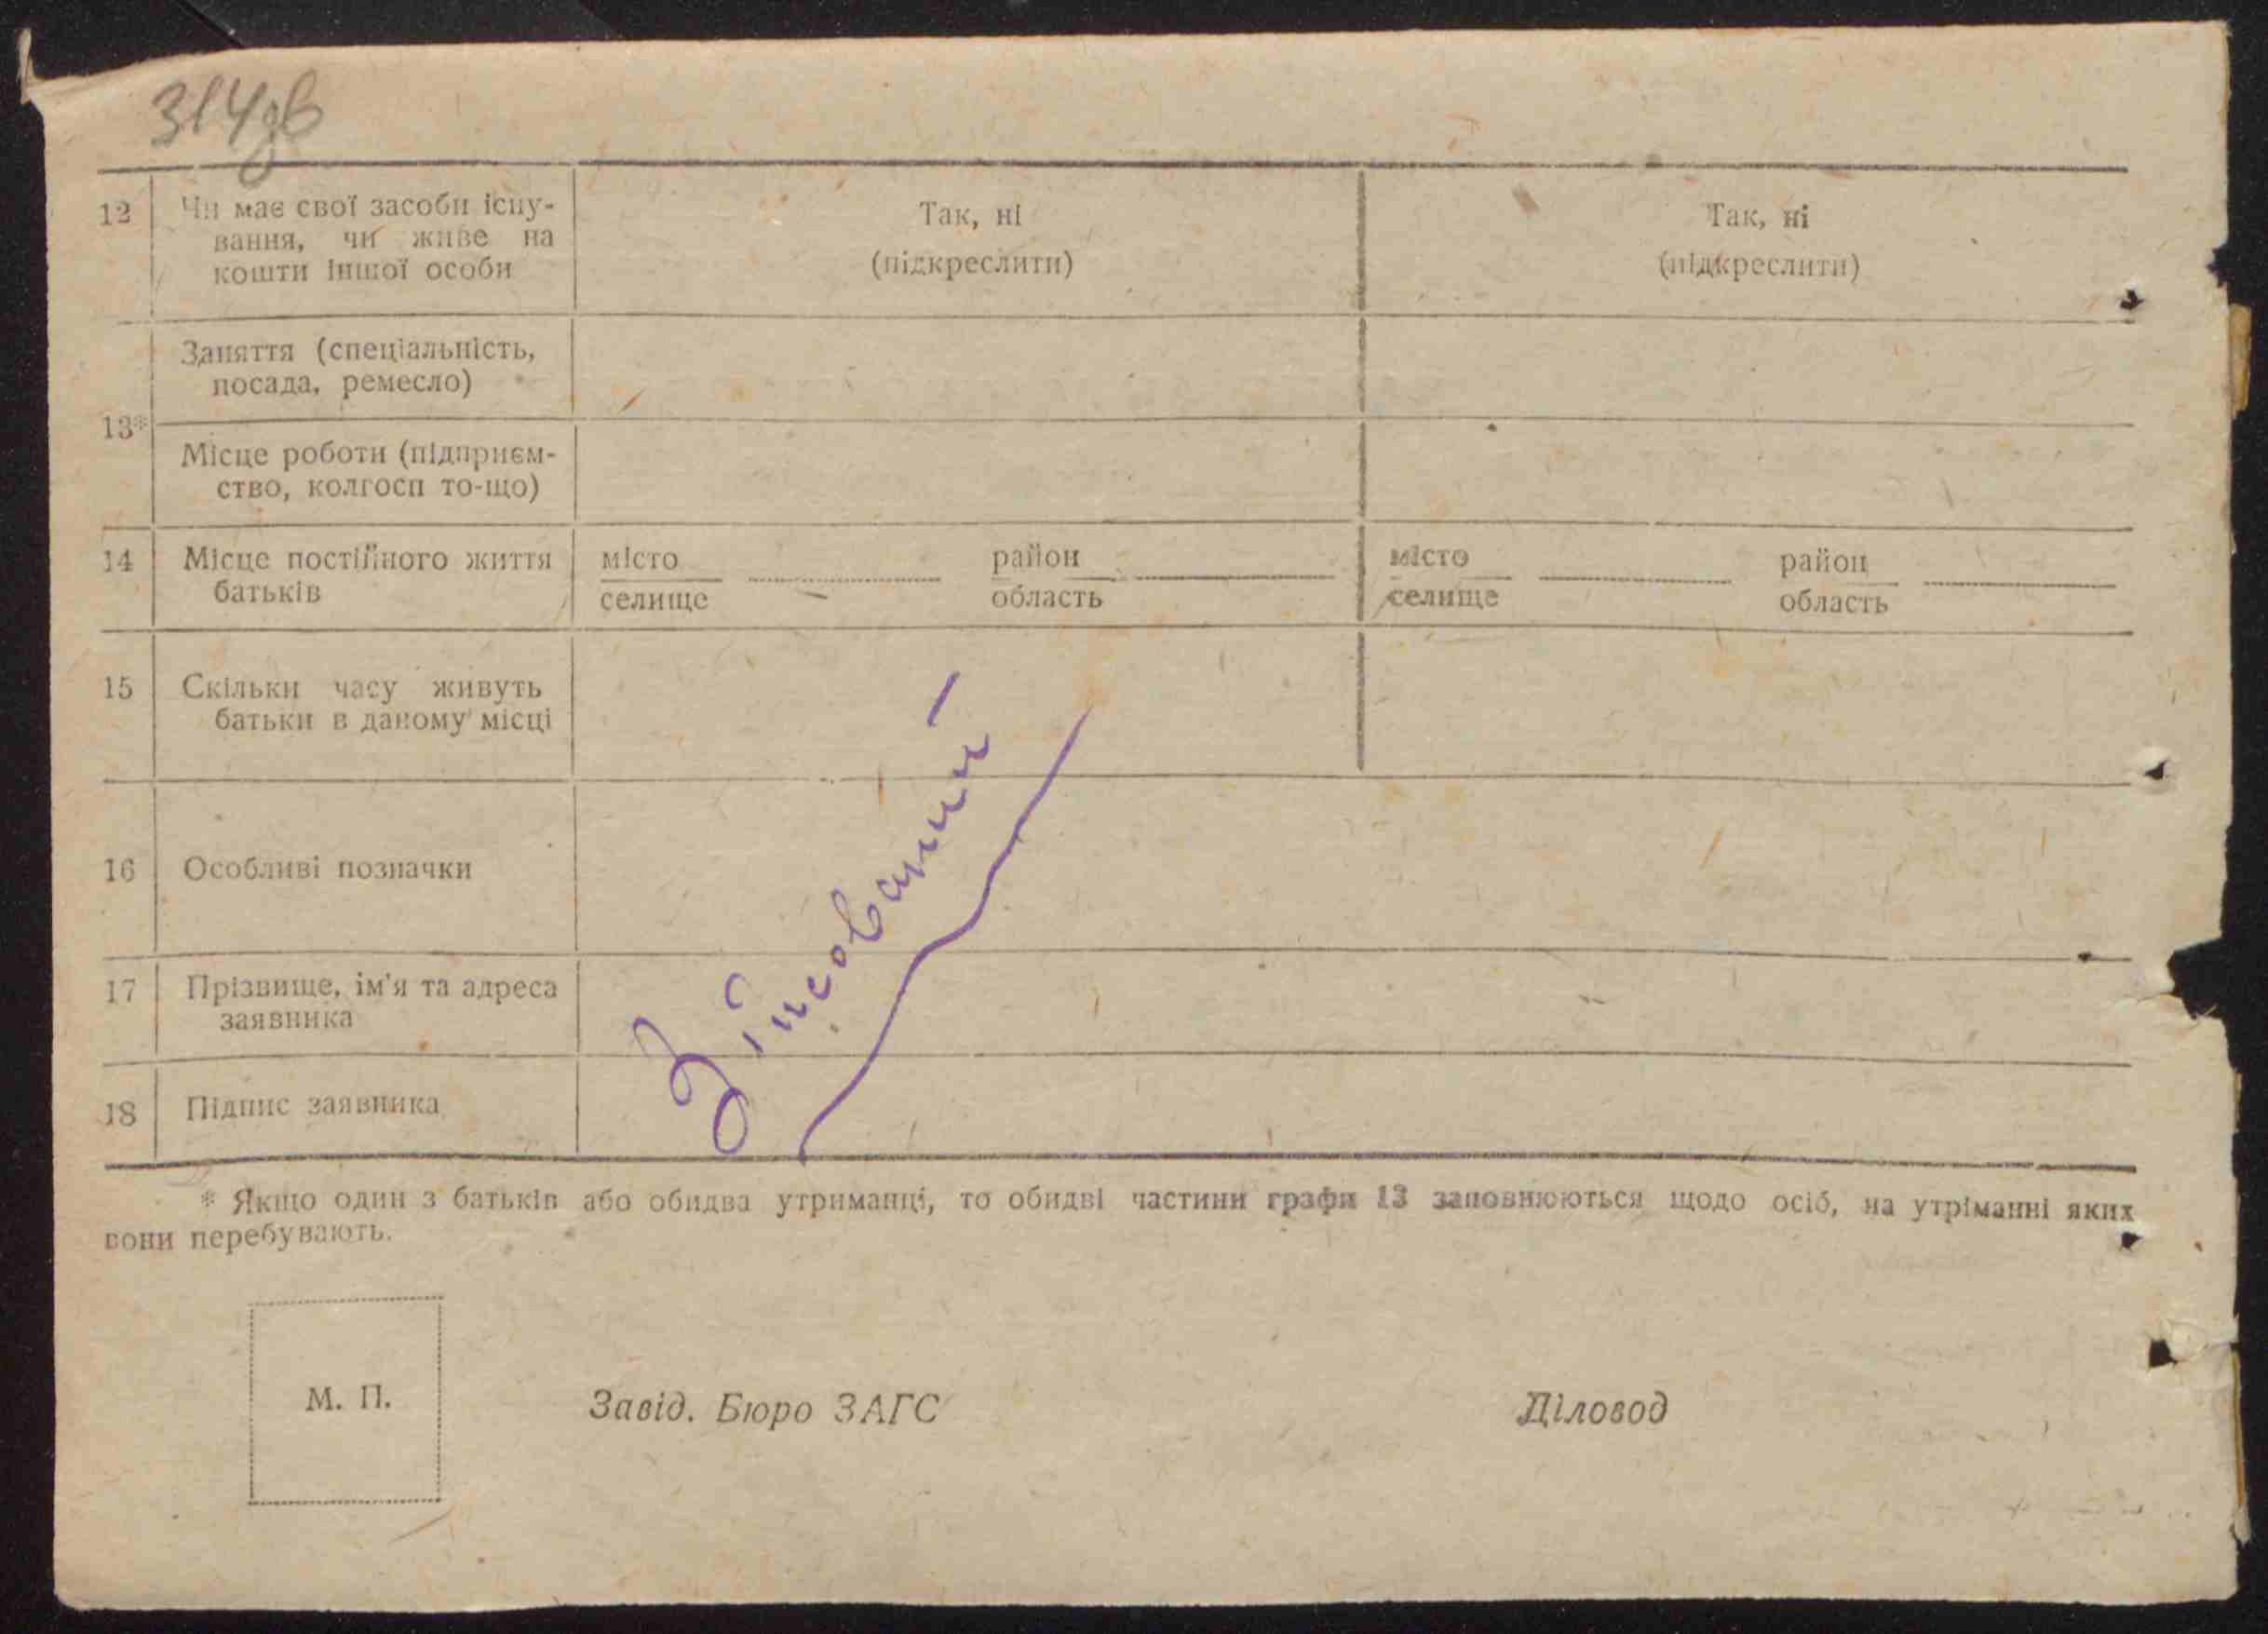 314зв
12 Чи має свої засоби існу-
вання, чи живе на
кошти іншої особи
Так, ні
(підкреслити)
Так, ні
(підкреслити)
13*
Заняття (спеціальність,
посада, ремесло)
Місце роботи (підприєм-
ство, колгосп то-що)
14 Місце постійного життя
батьків
місто
селище
район
область
місто
селище
район
область
15 Скільки часу живуть
батьки в даному місці
16 Особливі позначки
17 Прізвище, ім'я та адреса
заявника
18 Підпис заявника
Зіпсований
* Якщо один з батьків або обидва утриманці, то обидві частини графи 13 заповнюються щодо осіб, на утріманні яких
вони перебувають.
М. П.
Завід. Бюро ЗАГС
Діловод